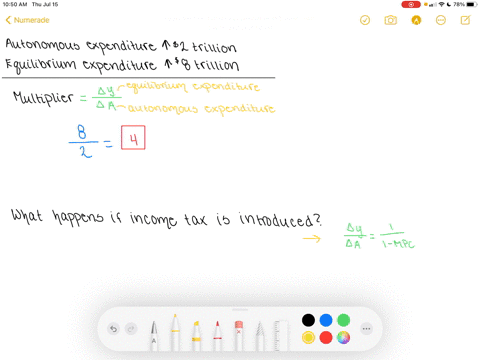 10:50 AM Thu Jul 15
78%
Numerade
Autonomous expenditure ↑ $2 trillion
Equilibrium expenditure ↑ $8 trillion
Multiplier = ΔY/ΔA
equilibrium expenditure
autonomous expenditure
8/2 = 4
What happens if income tax is introduced?
→ ΔY/ΔA = 1/1-MPC
A